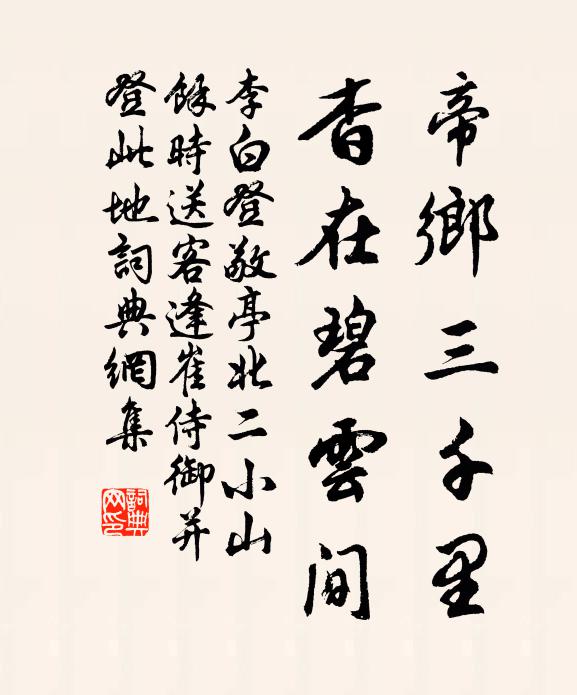 帝鄉三千里
杳在碧雲間
李白登敬亭北二小山
餘時送客逢崔侍御并
登此地詞典網集
詞典网印